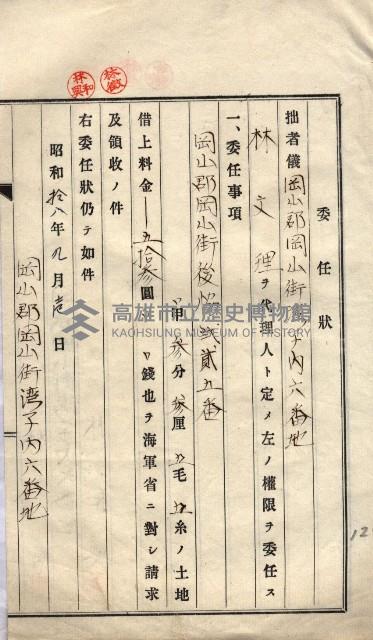 委任狀
拙者儀岡山郡岡山街 子內六番地
林文理ヲ代理人ト定メ左ノ權限ヲ委任ス
一、委任事項
岡山郡岡山街後 貳五番
甲參分參厘五毛 糸ノ土地
借上料金 五拾參圓 錢也ヲ海軍省ニ對シ請求
及領收ノ件
右委任狀仍テ如件
昭和拾八年九月 日
岡山郡岡山街湾子內六番地
高雄市立歷史博物館
KAOHSIUNG MUSEUM OF HISTORY
12